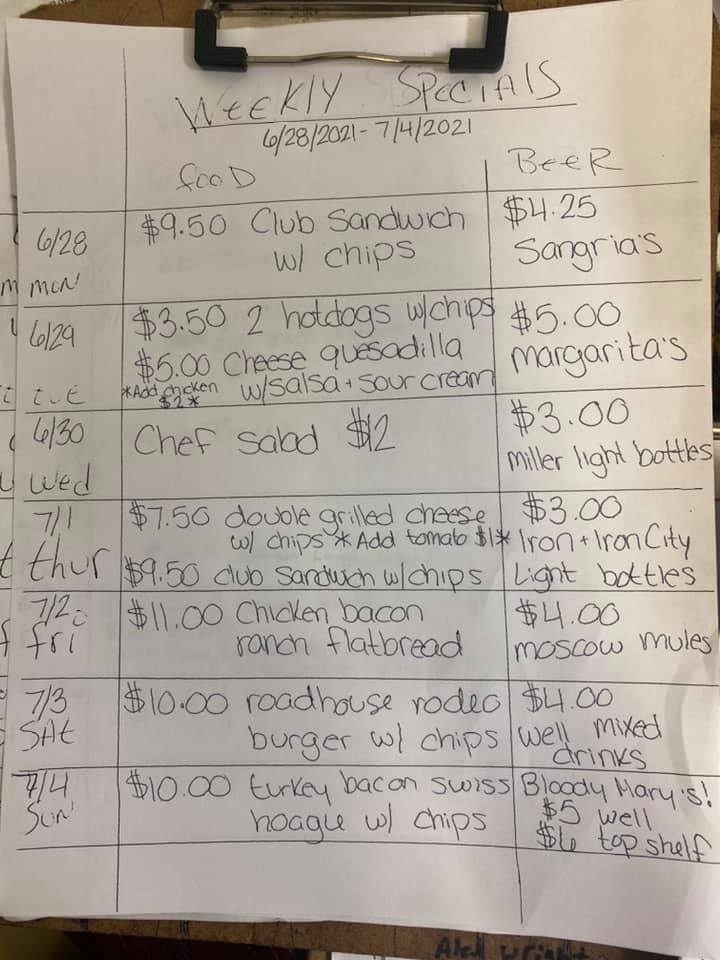 Weekly Specials
6/28/2021-7/4/2021
Food
Beer
6/28
mon
$9.50 Club Sandwich
w/ chips
$4.25
Sangria's
6/29
tue
$3.50 2 hotdogs w/chips
$5.00 Cheese quesadilla
*Add chicken w/salsa + sour cream
$2*
$5.00
margarita's
6/30
wed
Chef Salad $12
$3.00
miller light bottles
7/1
thur
$7.50 double grilled cheese
w/ chips *Add tomato $1*
$9.50 club Sandwich w/chips
$3.00
Iron + Iron City
Light bottles
7/2
fri
$11.00 Chicken bacon
ranch flatbread
$4.00
moscow mules
7/3
SAt
$10.00 roadhouse rodeo
burger w/ chips
$4.00
well mixed
drinks
7/4
Sun
$10.00 turkey bacon swiss
hoagie w/ chips
Bloody Mary's!
$5 well
$6 top shelf